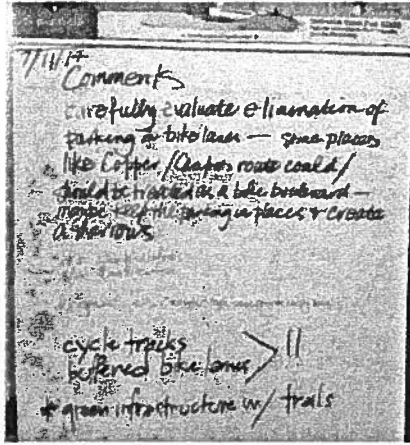 7/11/17
Comments
carefully evaluate elimination of
parking or bike lanes — some places
like Copper / route could /
should be treated as a bike boulevard —
maybe keep the parking in places & create
sharrows
cycle tracks
buffered bike lanes > ||
* green infrastructure w/ trails